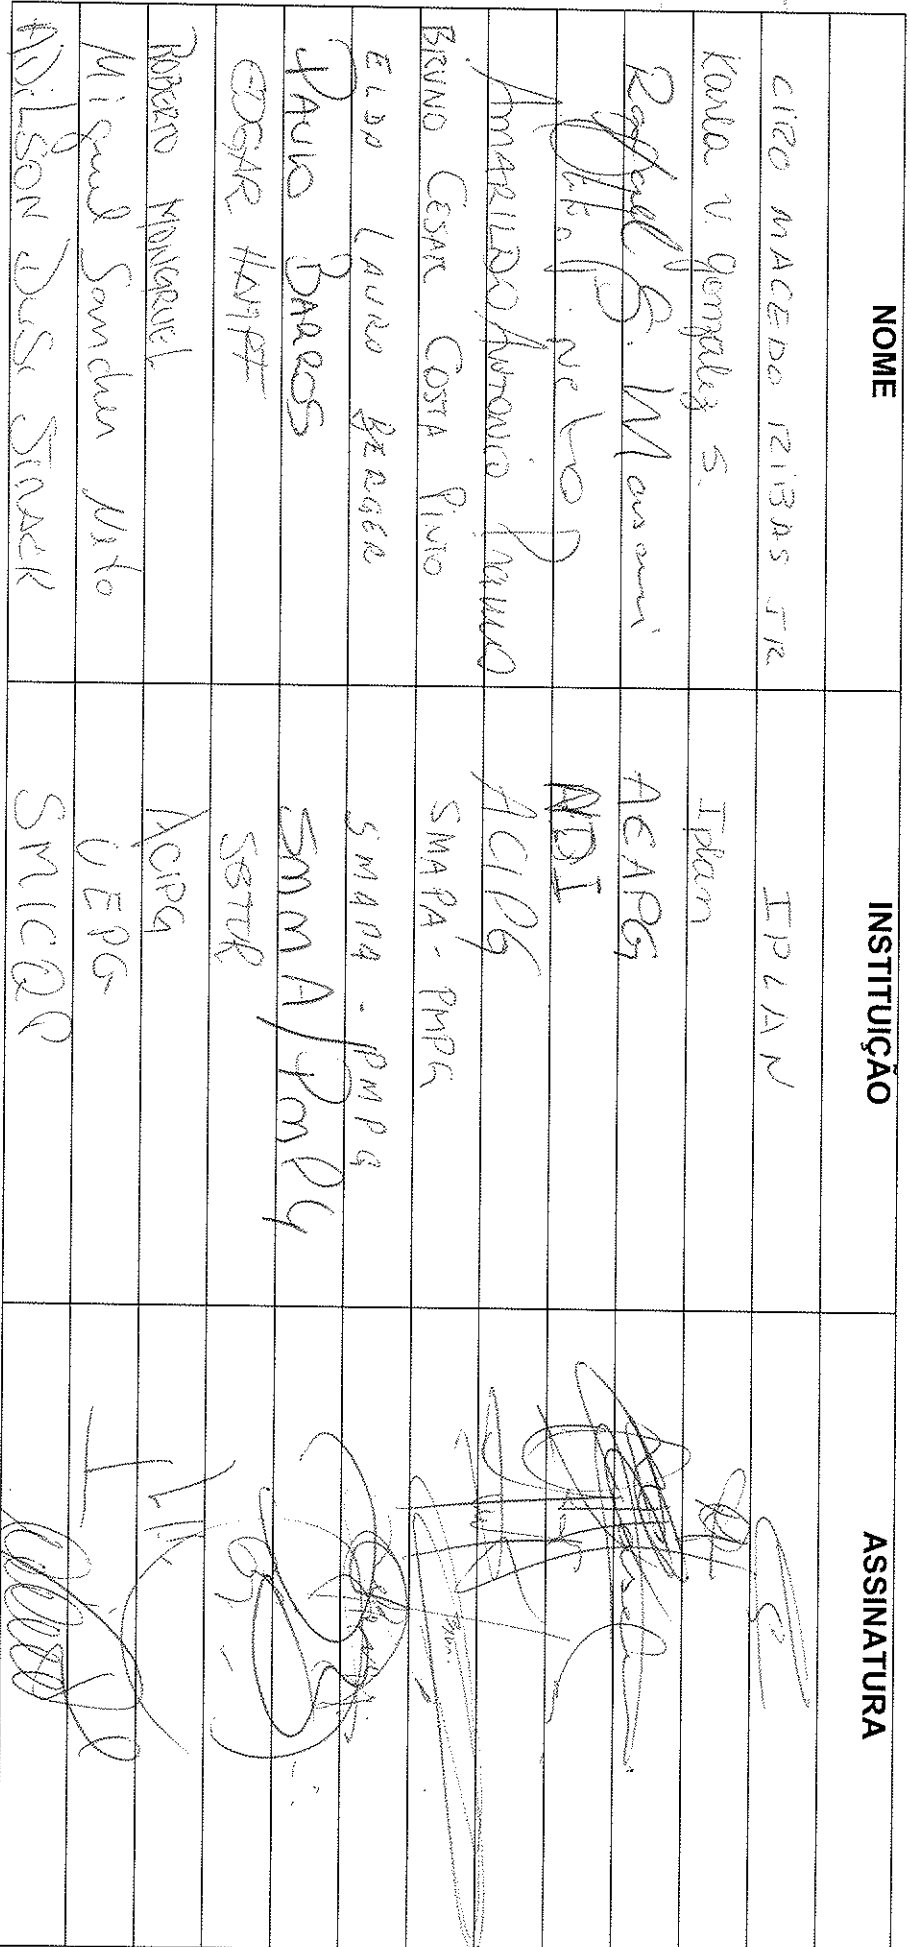 NOME INSTITUIÇÃO ASSINATURA
CIRO MACEDO RIBAS JR IPLAN
Karla V. Gonzalez S. Iplan
Rafael B. Mansani AEAPG
Neto NDI
AMARILDO ANTONIO ACIPG
BRUNO CESAR COSTA PINTO SMAPA - PMPG
ELDO LAURO BERGER SMAPA - PMPG
PAULO BARROS SMMA/PMPG
EDGAR HAMPF SETUR
ROBERTO MONGRUEL ACIPG
Miguel Sanches Neto UEPG
ADILSON STRACK SMICQP